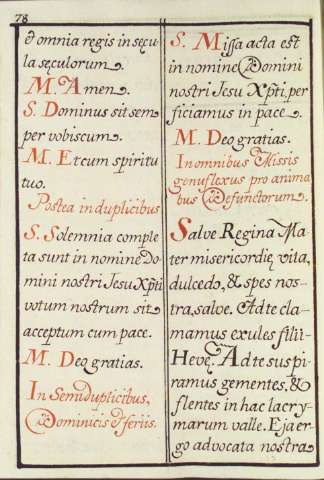 78
& omnia regis in sęcu
la sęculorum.
M. Amen.
S. Dominus sit sem
per vobiscum.
M. Et cum spiritu
tuo.
Postea in duplicibus
S. Solemnia comple
ta sunt in nomine Do
mini nostri Jesu Xpti
votum nostrum sit
acceptum cum pace.
M. Deo gratias.
In Semiduplicibus,
Dominicis & feriis.
S. Missa acta est
in nomine Domini
nostri Jesu Xpti, per
ficiamus in pace.
M. Deo gratias.
In omnibus Missis
genuflexus pro anima
bus Defunctorum.
Salve Regina Ma
ter misericordię, vita,
dulcedo, & spes nos-
tra, salve. Ad te cla-
mamus exules filii
Hevę. Ad te suspi-
ramus gementes, &
flentes in hac lacry-
marum valle. Eja er-
go advocata nostra